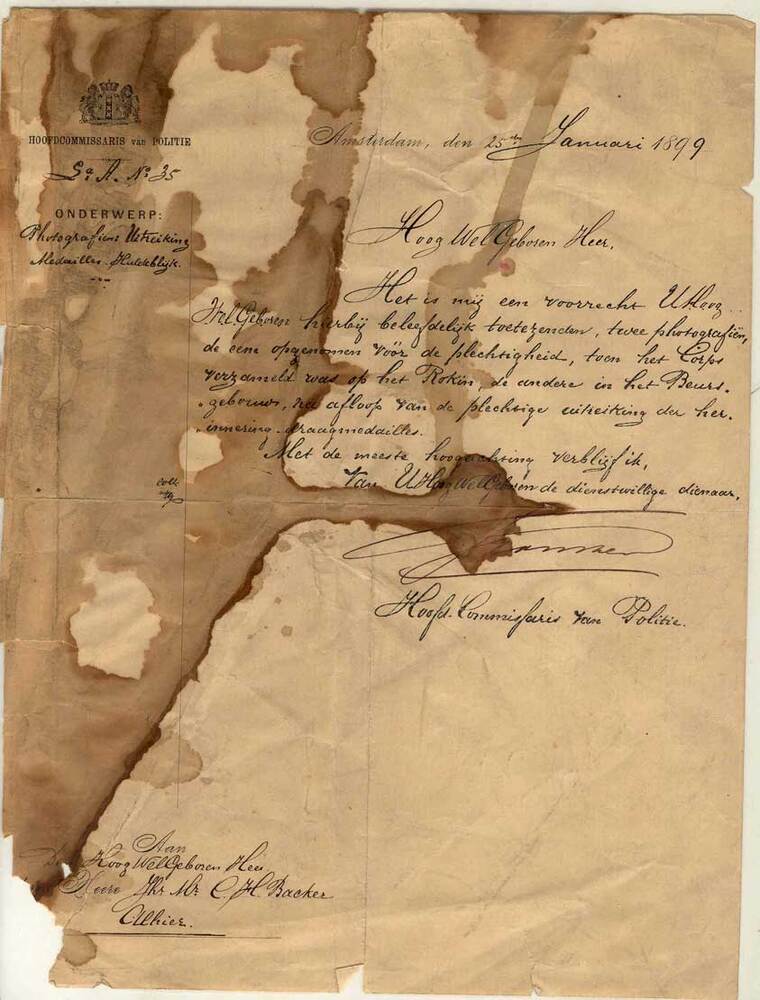 HOOFDCOMMISSARIS van POLITIE
La A. No 35
ONDERWERP:
Photografiens Uitreiking
Medailles-Huldeblijk.
Amsterdam, den 25sten Januari 1899
HoogWelGeboren Heer,
Het is mij een voorrecht UHoog
WelGeboren hierbij beleefdelijk toetezenden, twee photografiën,
de eene opgenomen vóór de plechtigheid, toen het Corps
verzameld was op het Rokin, de andere in het Beurs-
-gebouw, na afloop van de plechtige uitreiking der her-
-innering-draagmedailles.
Met de meeste hoogachting verblijf ik,
Van UHoogWelGeboren de dienstwillige dienaar,
Hoofd-Commissaris van Politie.
Aan
HoogWelGeboren Heer
Heere Jhr Mr C. H. Backer
Alhier.